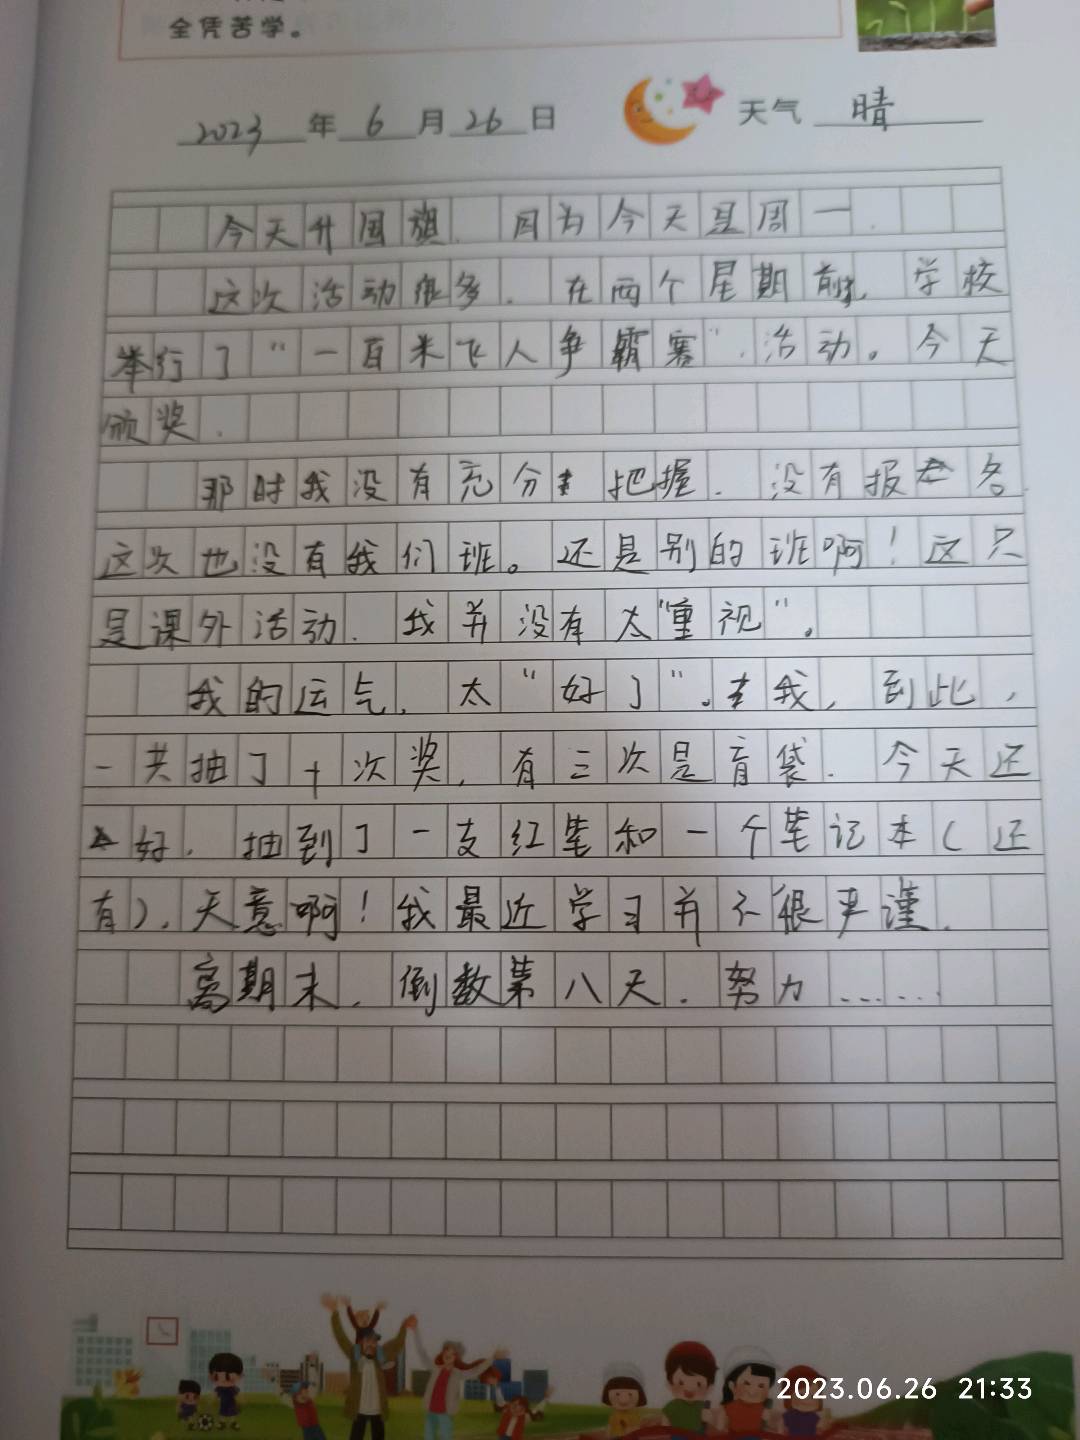 全凭苦学。
2023年6月26日 天气 晴
今天升国旗.因为今天是周一.
这次活动很多.在两个星期前,学校
举行了“一百米飞人争霸赛”.活动。今天
颁奖.
那时我没有充分把握.没有报名.
这次也没有我们班。还是别的班啊!这只
是课外活动.我并没有太“重视”。
我的运气,太“好了”。我,到此,
一共抽了十次奖,有三次是盲袋.今天还
好.抽到了一支红笔和一个笔记本(还
有).天意啊!我最近学习并不很严谨.
离期末,倒数第八天.努力……
2023.06.26 21:33